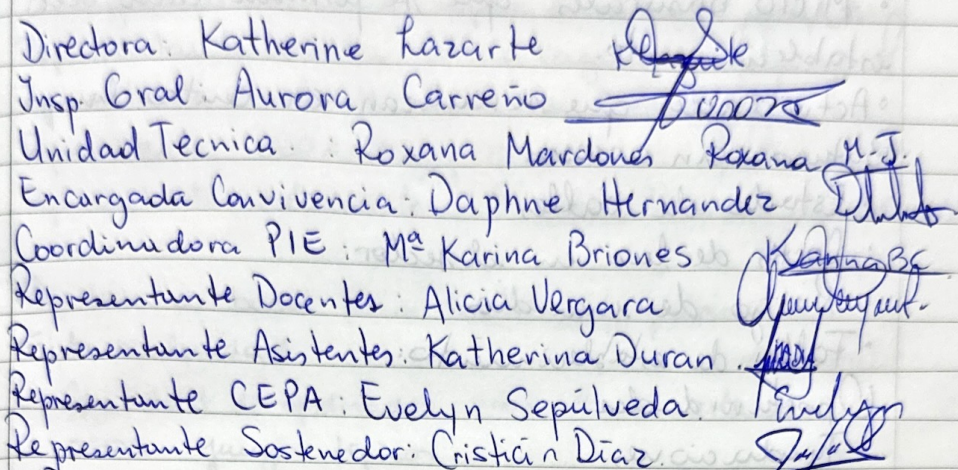 Directora: Katherine Lazarte
Insp. Gral. Aurora Carreño
Unidad Tecnica : Roxana Mardones Roxana M.J.
Encargada Convivencia: Daphne Hernandez
Coordinadora PIE : Mª Karina Briones Karina BC
Representante Docentes : Alicia Vergara
Representante Asistentes: Katherina Duran
Representante CEPA : Evelyn Sepúlveda Evelyn
Representante Sostenedor: Cristián Díaz.